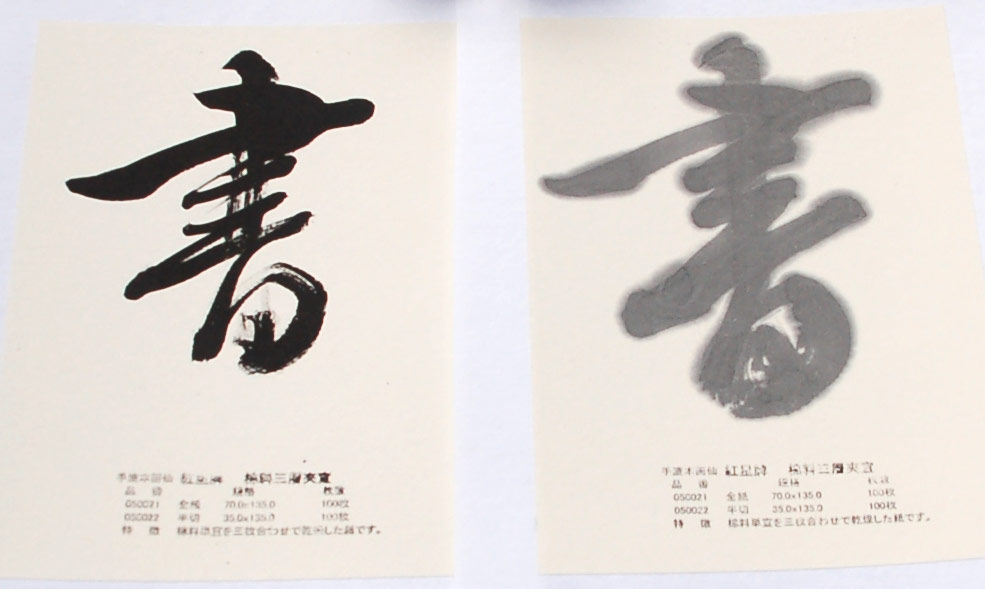 書
手漉本画仙 紅星牌 棉料三層夾宣
品番 規格 枚数
050021 全紙 70.0×135.0 100枚
050022 半切 35.0×135.0 100枚
特徴 棉料単宣を三枚合わせで乾燥した紙です。
書
手漉本画仙 紅星牌 棉料三層夾宣
品番 規格 枚数
050021 全紙 70.0×135.0 100枚
050022 半切 35.0×135.0 100枚
特徴 棉料単宣を三枚合わせで乾燥した紙です。